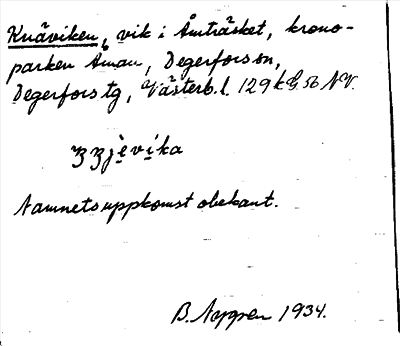 Knäviken, vik i Åmträsket, krono-
parken Åman, Degerfors sn,
Degerfors tg, Västerb. l. 129 k G. 56 NV.
jèvíka
Namnets uppkomst obekant.
B. 1934.